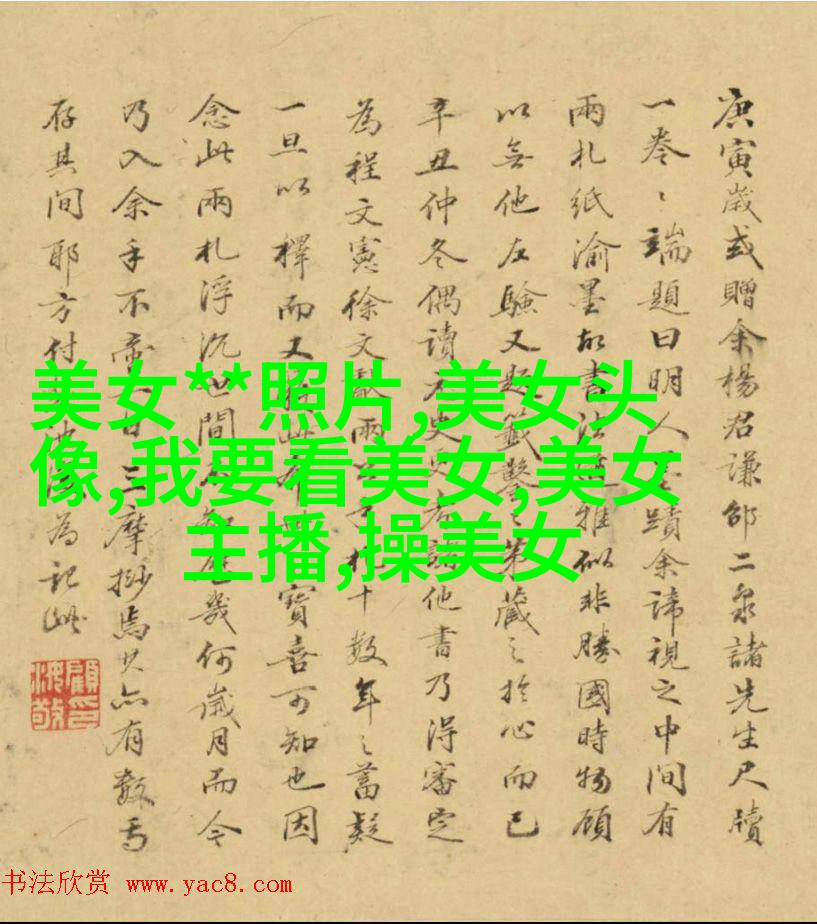 庚寅歲或贈余楊君謙邵二泉諸先生尺牘
一卷〻端題曰明人墨蹟余諦視之中間有
兩札紙渝墨
書法
雅似非勝國時物顧
以無他左驗又題籤
第藏之於心而已
辛丑仲冬偶讀元史
他書乃得審定
為程文憲徐文獻兩
札十數年之蓄疑
一旦以釋而又
寶喜可知也因
念此兩札浮沉世間
幾何歲月而今
乃入余手不
三摩挱焉其亦有數焉
存其間耶方付
為記此
美女**照片,美女头
像,我要看美女,美女
主播,操美女
书法欣赏 www.yac8.com